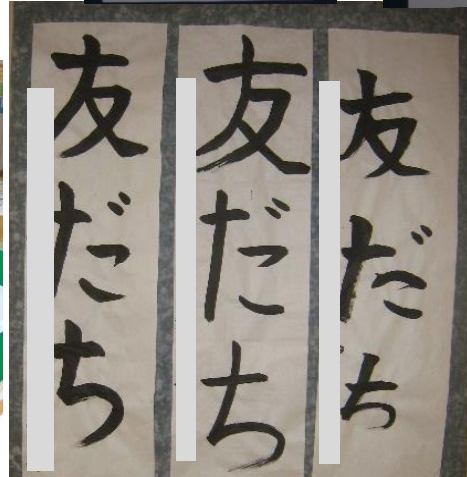 友だち
友だち
友だち